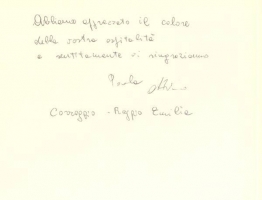 Abbiamo apprezzato il calore
della vostra ospitalità
e sentitamente vi ringraziamo
Paola
Correggio - Reggio Emilia